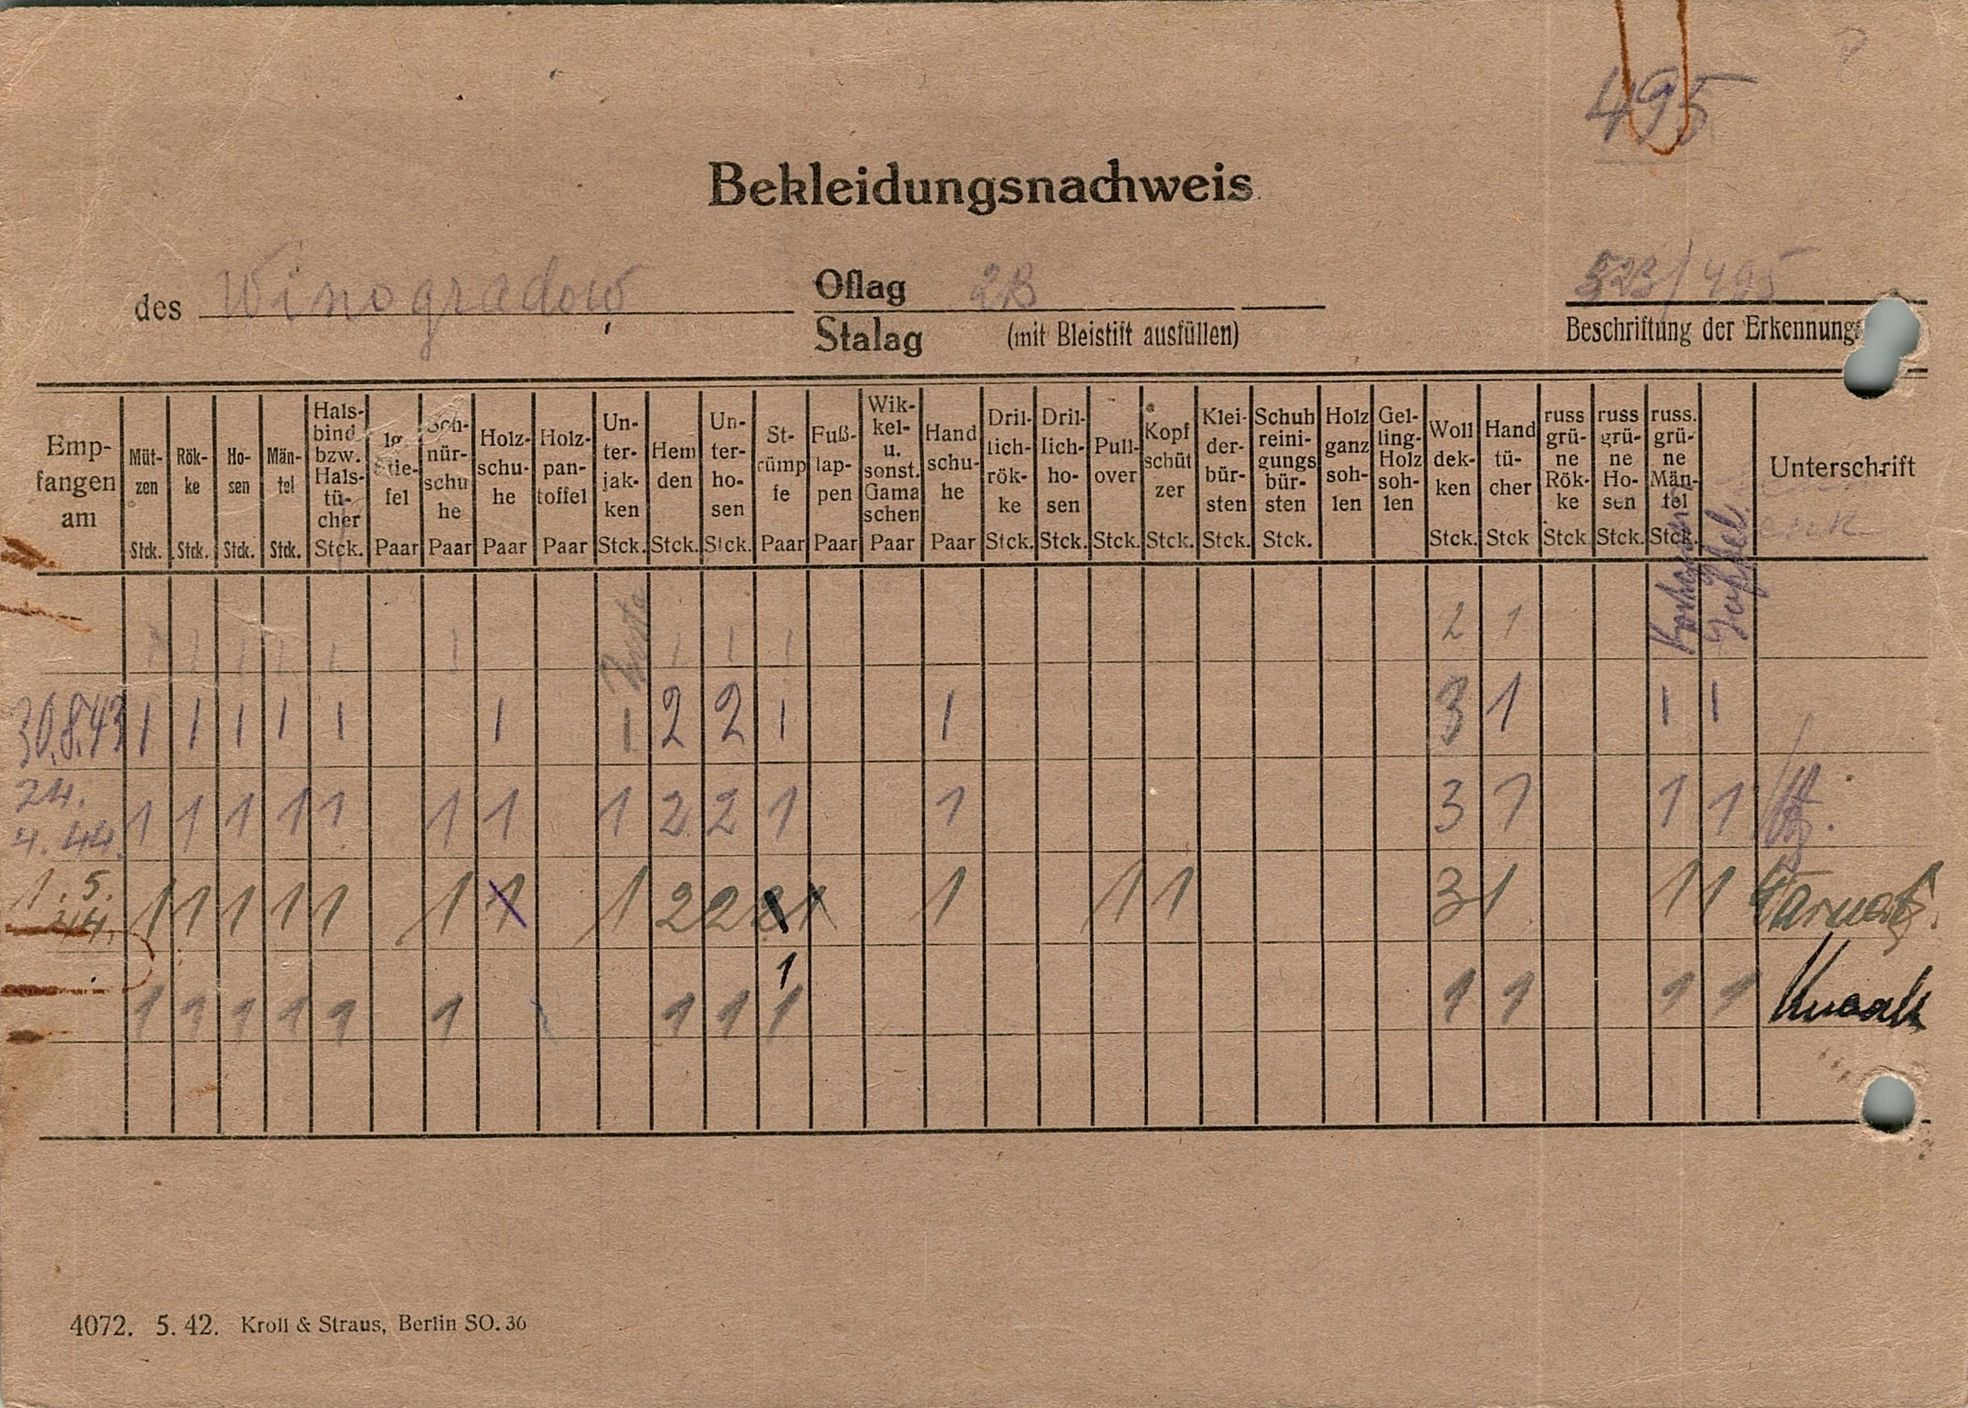 495
Bekleidungsnachweis
des Winogradow Oflag 2B 323/495
Stalag (mit Bleistift ausfüllen) Beschriftung der Erkennungs
Empfangen am
Müt-zen Stck.
Rök-ke Stck.
Ho-sen Stck.
Män-tel Stck.
Hals-bind. bzw. Hals-tü-cher Stck.
lg. Stie-fel Paar
Sch-nür-schu he Paar
Holz-schu-he Paar
Holz-pan-toffel Paar
Un-ter-jak-ken Stck.
Hem den Stck.
Un-ter-ho-sen Stck.
St-rümp fe Paar
Fuß-lap-pen Paar
Wik-kel- u. sonst. Gama schen Paar
Hand schu-he Paar
Dril-lich-rök-ke Stck.
Dril-lich-ho-sen Stck.
Pull-over Stck.
Kopf schüt zer Stck.
Klei-der-bür-sten Stck.
Schuh reini-gungs bür-sten Stck.
Holz ganz soh-len
Gel-ling-Holz soh-len
Woll dek-ken Stck.
Hand tü-cher Stck
russ grü-ne Rök-ke Stck.
russ grü-ne Ho-sen Stck.
russ. grü-ne Män-tel Stck.
Unterschrift
1 1 1 1 1 1 1 1 1 2 1
30.8.43 1 1 1 1 1 1 1 2 2 1 1 3 1 1 1
24. 4. 44. 1 1 1 1 1 1 1 1 2 2 1 1 3 1 1 1
1. 5. 44. 1 1 1 1 1 1 1 1 2 2 2 1 1 1 1 3 1 1 1
1
1 1 1 1 1 1 1 1 1 1 1 1 1
4072. 5. 42. Kroll & Straus, Berlin SO. 36